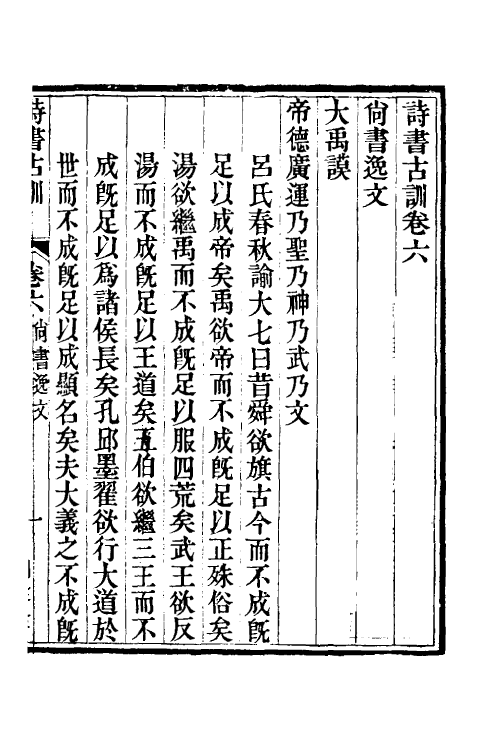 詩書古訓卷六
尙書逸文
大禹謨
帝德廣運乃聖乃神乃武乃文
呂氏春秋諭大七曰昔舜欲旗古今而不成旣
足以成帝矣禹欲帝而不成旣足以正殊俗矣
湯欲繼禹而不成旣足以服四荒矣武王欲反
湯而不成旣足以王道矣五伯欲繼三王而不
成旣足以爲諸侯長矣孔邱墨翟欲行大道於
世而不成旣足以成顯名矣夫大義之不成旣
詩書古訓 卷六 尙書逸文 一